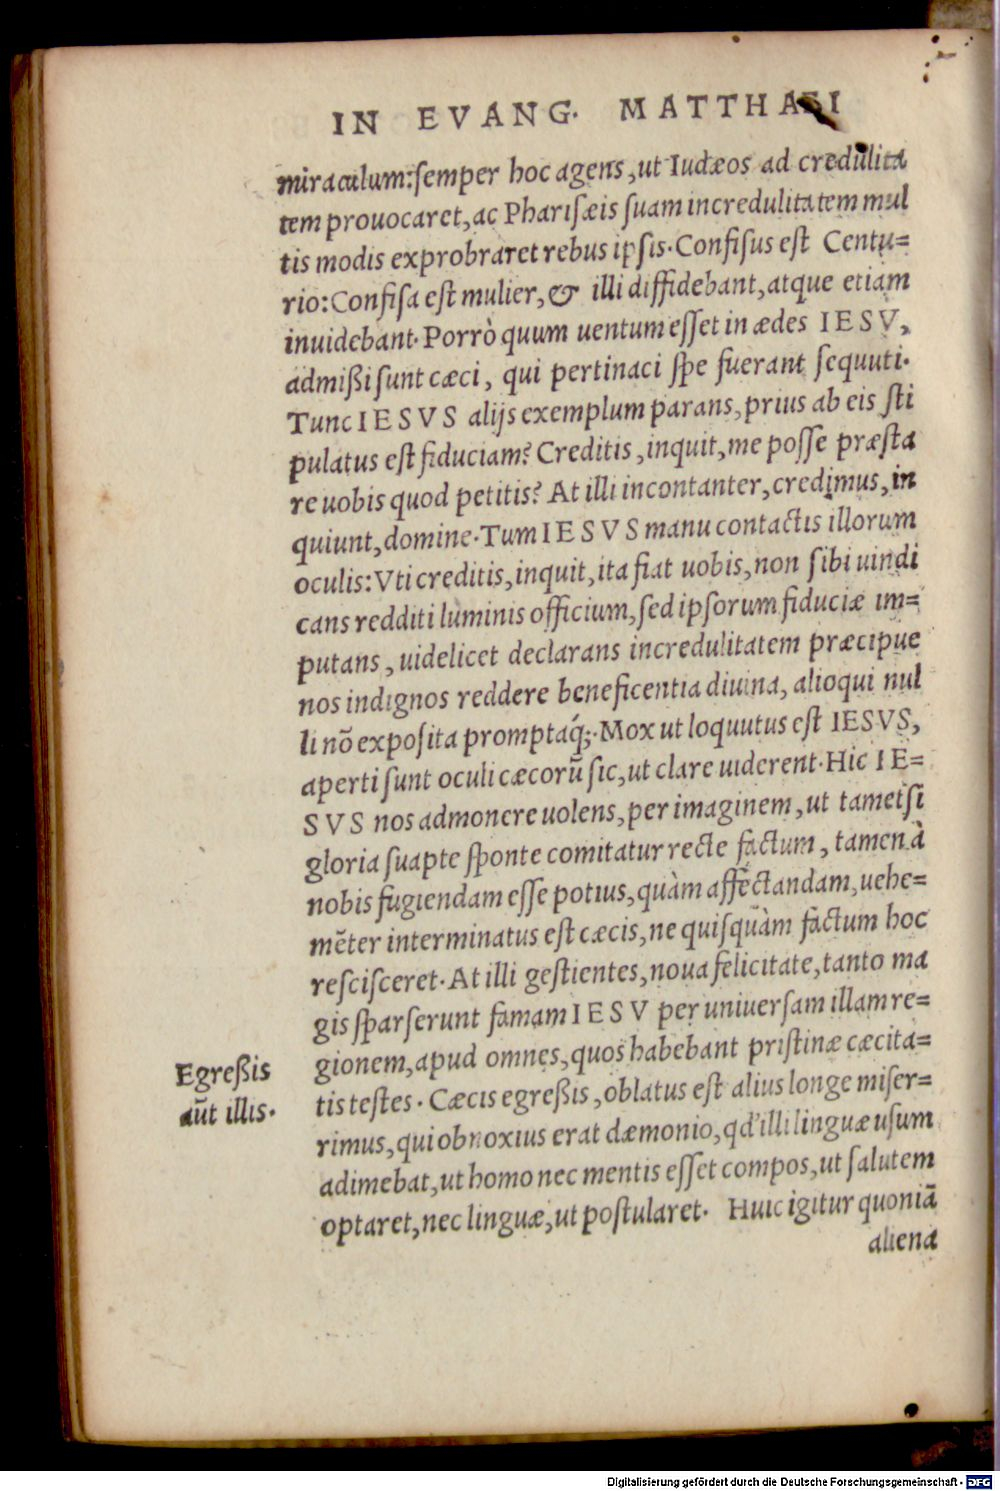 IN EVANG. MATTHAEI
miraculum: ſemper hoc agens, ut Iudæos ad credulita
tem prouocaret, ac Phariſæis ſuam incredulitatem mul
tis modis exprobraret rebus ipſis. Confiſus eſt Centu=
rio: Confiſa eſt mulier, & illi diffidebant, atque etiam
inuidebant. Porrò quum uentum eſſet in ædes IESV,
admißi ſunt cæci, qui pertinaci ſpe fuerant ſequuti.
Tunc IESVS alijs exemplum parans, prius ab eis ſti
pulatus eſt fiduciam? Creditis, inquit, me poſſe præſta
re uobis quod petitis? At illi incontanter, credimus, in
quiunt, domine. Tum IESVS manu contactis illorum
oculis: Vti creditis, inquit, ita fiat uobis, non ſibi uindi
cans redditi luminis officium, ſed ipſorum fiduciæ im=
putans, uidelicet declarans incredulitatem præcipue
nos indignos reddere beneficentia diuina, alioqui nul
li nõ expoſita promptaq́;. Mox ut loquutus eſt IESVS,
aperti ſunt oculi cæcorũ ſic, ut clare uiderent. Hic IE=
SVS nos admonere uolens, per imaginem, ut tametſi
gloria ſuapte ſponte comitatur recte factum, tamen à
nobis fugiendam eſſe potius, quàm affectandam, uehe=
mẽter interminatus eſt cæcis, ne quiſquàm factum hoc
reſciſceret. At illi geſtientes, noua felicitate, tanto ma
gis ſparſerunt famam IESV per uniuerſam illam re=
gionem, apud omnes, quos habebant priſtinæ cæcita=
tis teſtes. Cæcis egreßis, oblatus eſt alius longe miſer=
Egreßis
aũt illis.
rimus, qui obnoxius erat dæmonio, qd' illi linguæ uſum
adimebat, ut homo nec mentis eſſet compos, ut ſalutem
optaret, nec linguæ, ut poſtularet. Huic igitur quoniã
aliena
Digitalisierung gefördert durch die Deutsche Forschungsgemeinschaft - DFG